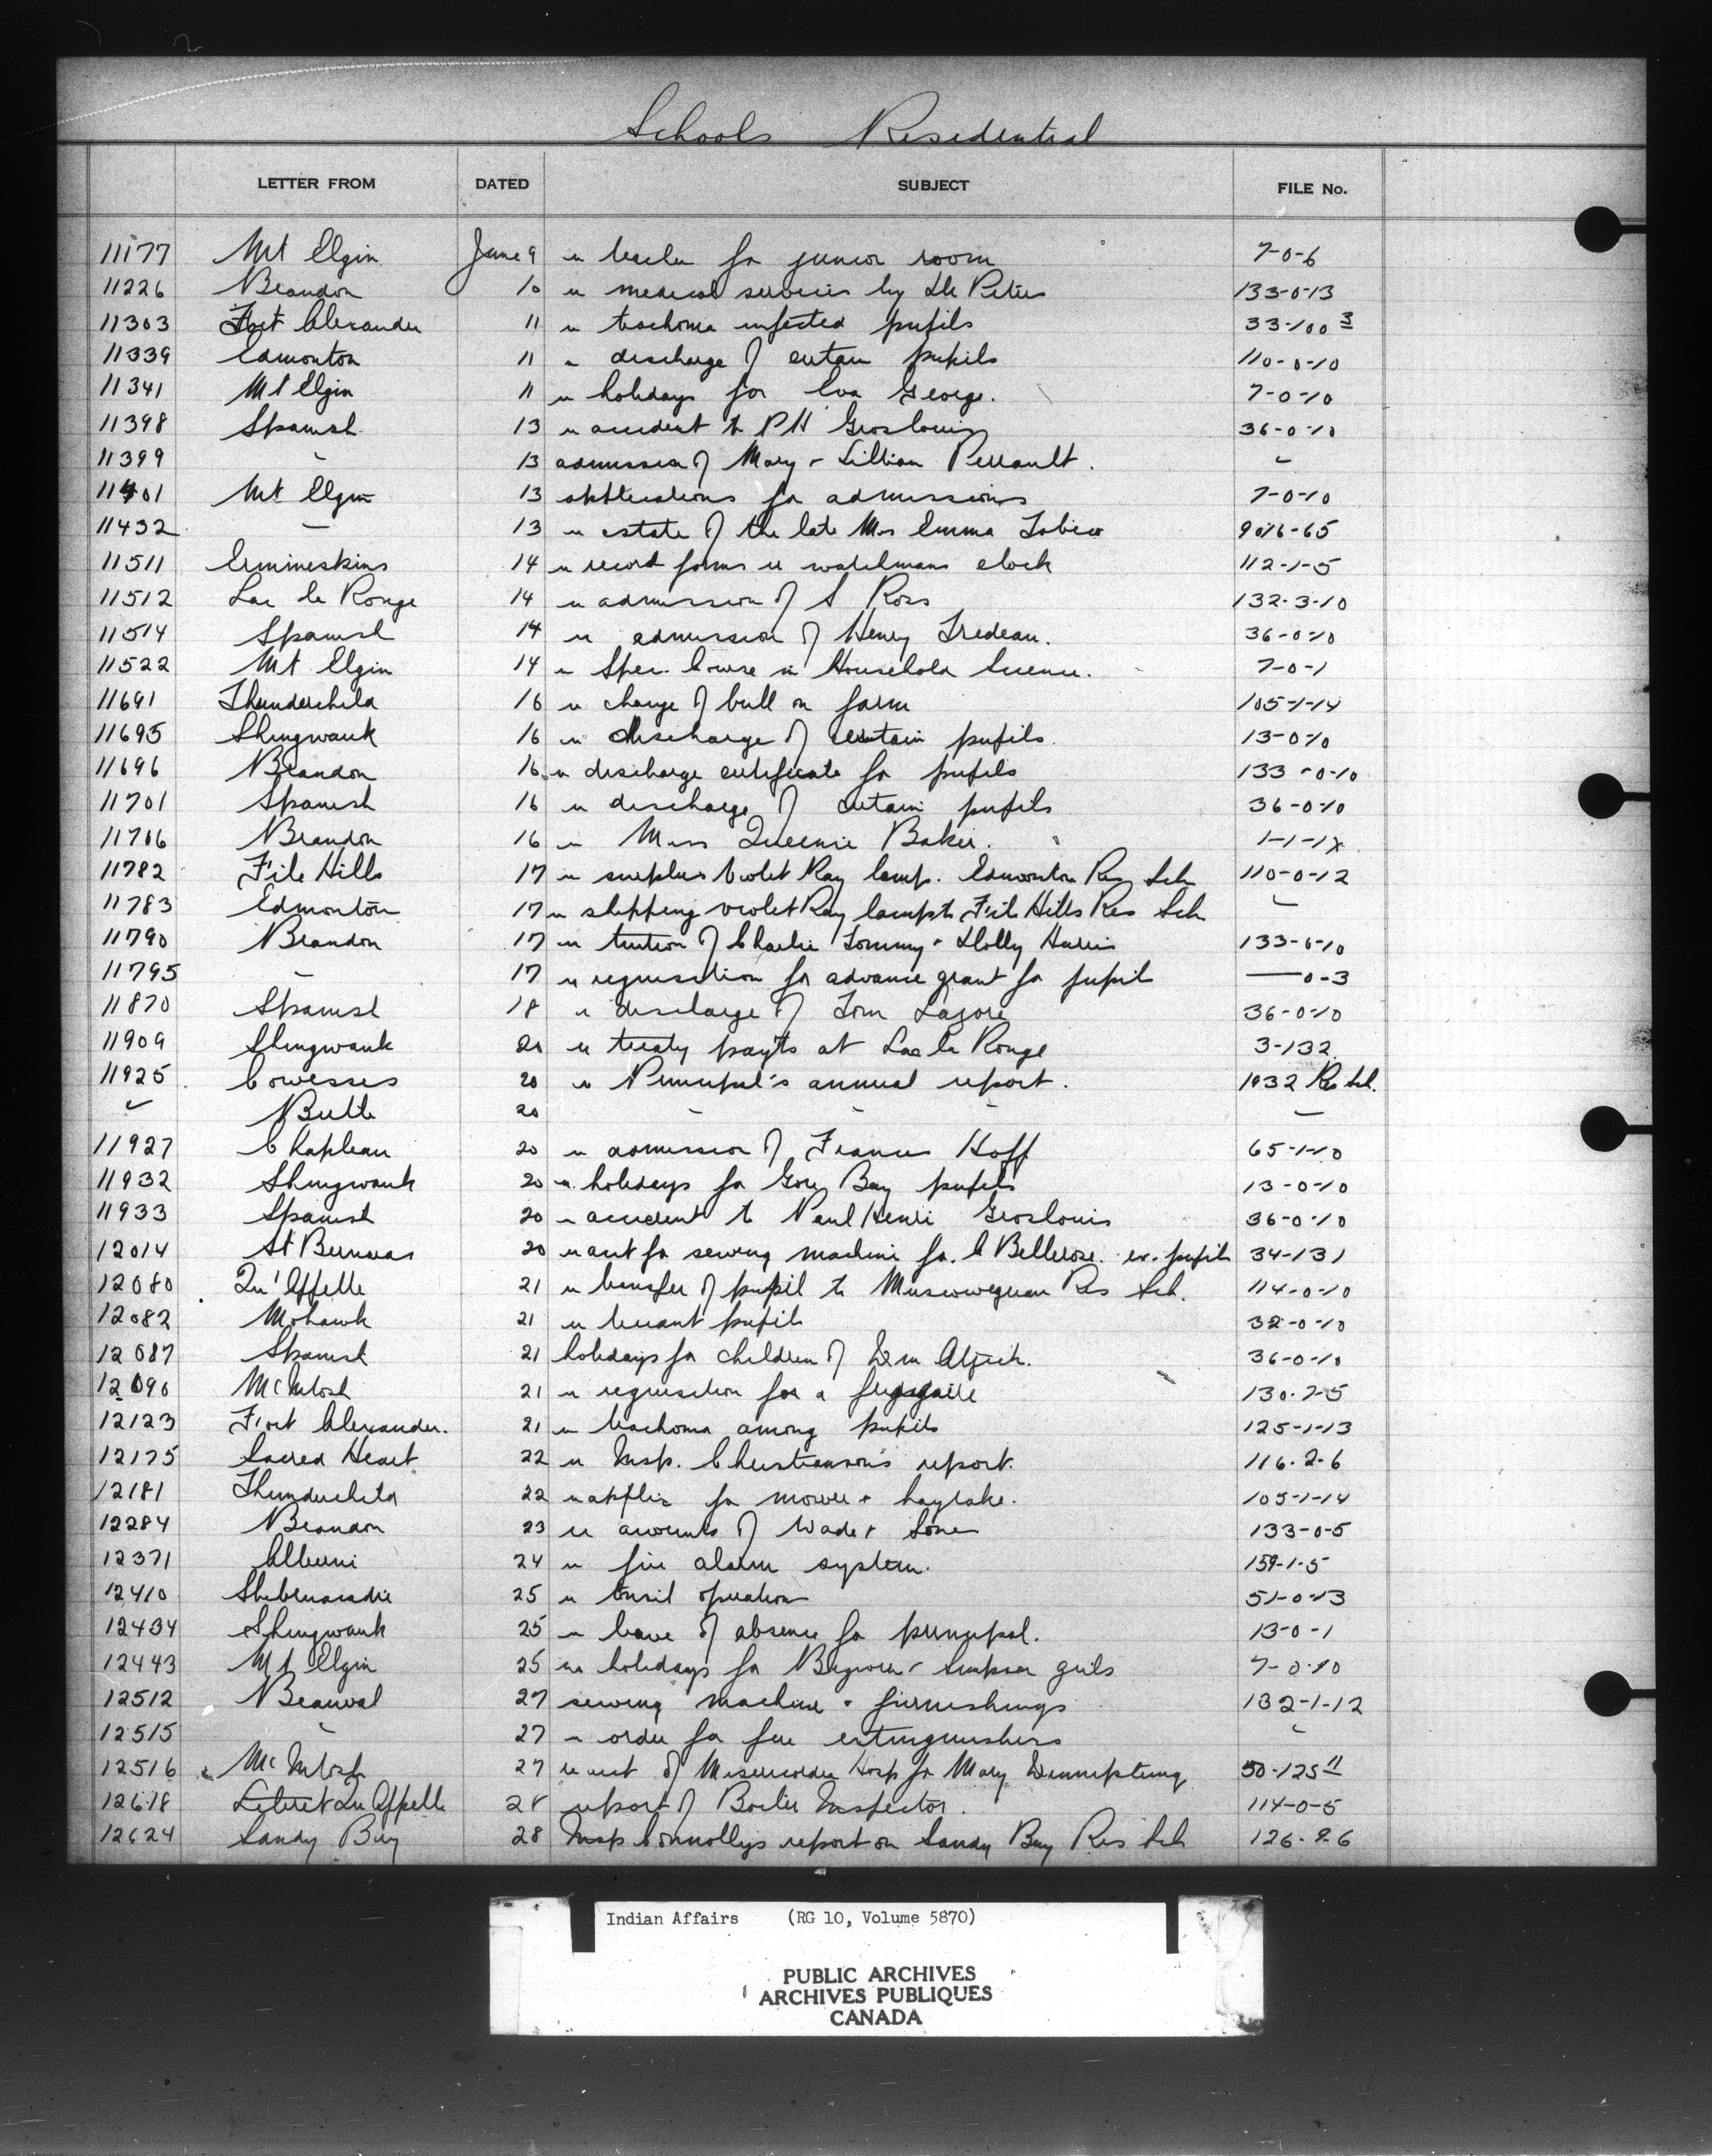 Schools Residential
LETTER FROM DATED SUBJECT FILE No.
11177 Mt Elgin June 9 re teacher for junior room 7-0-6
11226 Brandon 10 re medical services by Dr Peters 133-0-13
11303 Fort Alexander 11 re trachoma infected pupils 33-100 3
11339 Edmonton 11 re discharge of certain pupils 110-0-10
11341 Mt Elgin 11 re holidays for Eva George. 7-0-10
11398 Spanish 13 re accident to P H Groslouis 36-0-10
11399 " 13 admission of Mary & Lillian Perrault. "
11401 Mt Elgin 13 applications for admissions 7-0-10
11432 — 13 re estate of the late Mrs Emma Tobico 90/6-65
11511 Ermineskins 14 re record forms re watchmans clock 112-1-5
11512 Lac la Ronge 14 re admission of S Ross 132-3-10
11514 Spanish 14 re admission of Henry Tredeau. 36-0-10
11522 Mt Elgin 14 re Spec. Course in Household Science. 7-0-1
11691 Thunderchild 16 re charge of bull on farm 105-1-14
11695 Shingwauk 16 re discharge of certain pupils. 13-0-10
11696 Brandon 16 re discharge certificate for pupils 133-0-10
11701 Spanish 16 re discharge of certain pupils 36-0-10
11706 Brandon 16 re Miss Queenie Baker. 1-1-1x
11782 File Hills 17 re surplus Violet Ray lamp. Edmonton Res Sch 110-0-12
11783 Edmonton 17 re shipping violet Ray lamp to File Hills Res Sch "
11790 Brandon 17 re tuition of Charlie Tommy & Dolly Harris 133-6-10
11795 — 17 re requisition for advance grant for pupil —0-3
11870 Spanish 18 re discharge of Tom Lazore 36-0-10
11909 Shingwauk 20 re treaty payts at Lac la Ronge 3-132
11925 Cowesses 20 re Principal's annual report. 1932 Res Sch.
" Birtle 20 - - - —
11927 Chapleau 20 re admission of Francis Hoff 65-1-10
11932 Shingwauk 20 re holidays for Gore Bay pupils 13-0-10
11933 Spanish 20 re accident to Paul Henri Groslouis 36-0-10
12014 St Bernards 20 re acct for sewing machine for C Bellerose. ex-pupil 34-131
12080 Qu'Appelle 21 re transfer of pupil to Muscowequan Res Sch. 114-0-10
12082 Mohawk 21 re truant pupils 32-0-10
12087 Spanish 21 holidays for children of 36-0-10
12090 McIntosh 21 re requisition for a 130-7-5
12123 Fort Alexander. 21 re trachoma among pupils 125-1-13
12175 Sacred Heart 22 re Insp. Christianson's report. 116-2-6
12181 Thunderchild 22 re applic for mower & hayrake. 105-1-14
12284 Brandon 23 re accounts of Wade & Sons 133-0-5
12371 Alberni 24 re fire alarm system. 159-1-5
12410 Shubenacadie 25 re tonsil operations 51-0-13
12434 Shingwauk 25 re leave of absence for principal. 13-0-1
12443 Mt Elgin 25 re holidays for & Simpson girls 7-0-10
12512 Beauval 27 sewing machine & furnishings 132-1-12
12515 " 27 re order for fire extinguishers "
12516 McIntosh 27 re acct of Misericordia Hosp for Mary 50-125 11
12618 Lebret Qu Appelle 28 report of Boiler Inspector. 114-0-5
12624 Sandy Bay 28 Insp Connollys report on Sandy Bay Res Sch 126-9-6
Indian Affairs (RG 10, Volume 5870)
PUBLIC ARCHIVES
ARCHIVES PUBLIQUES
CANADA